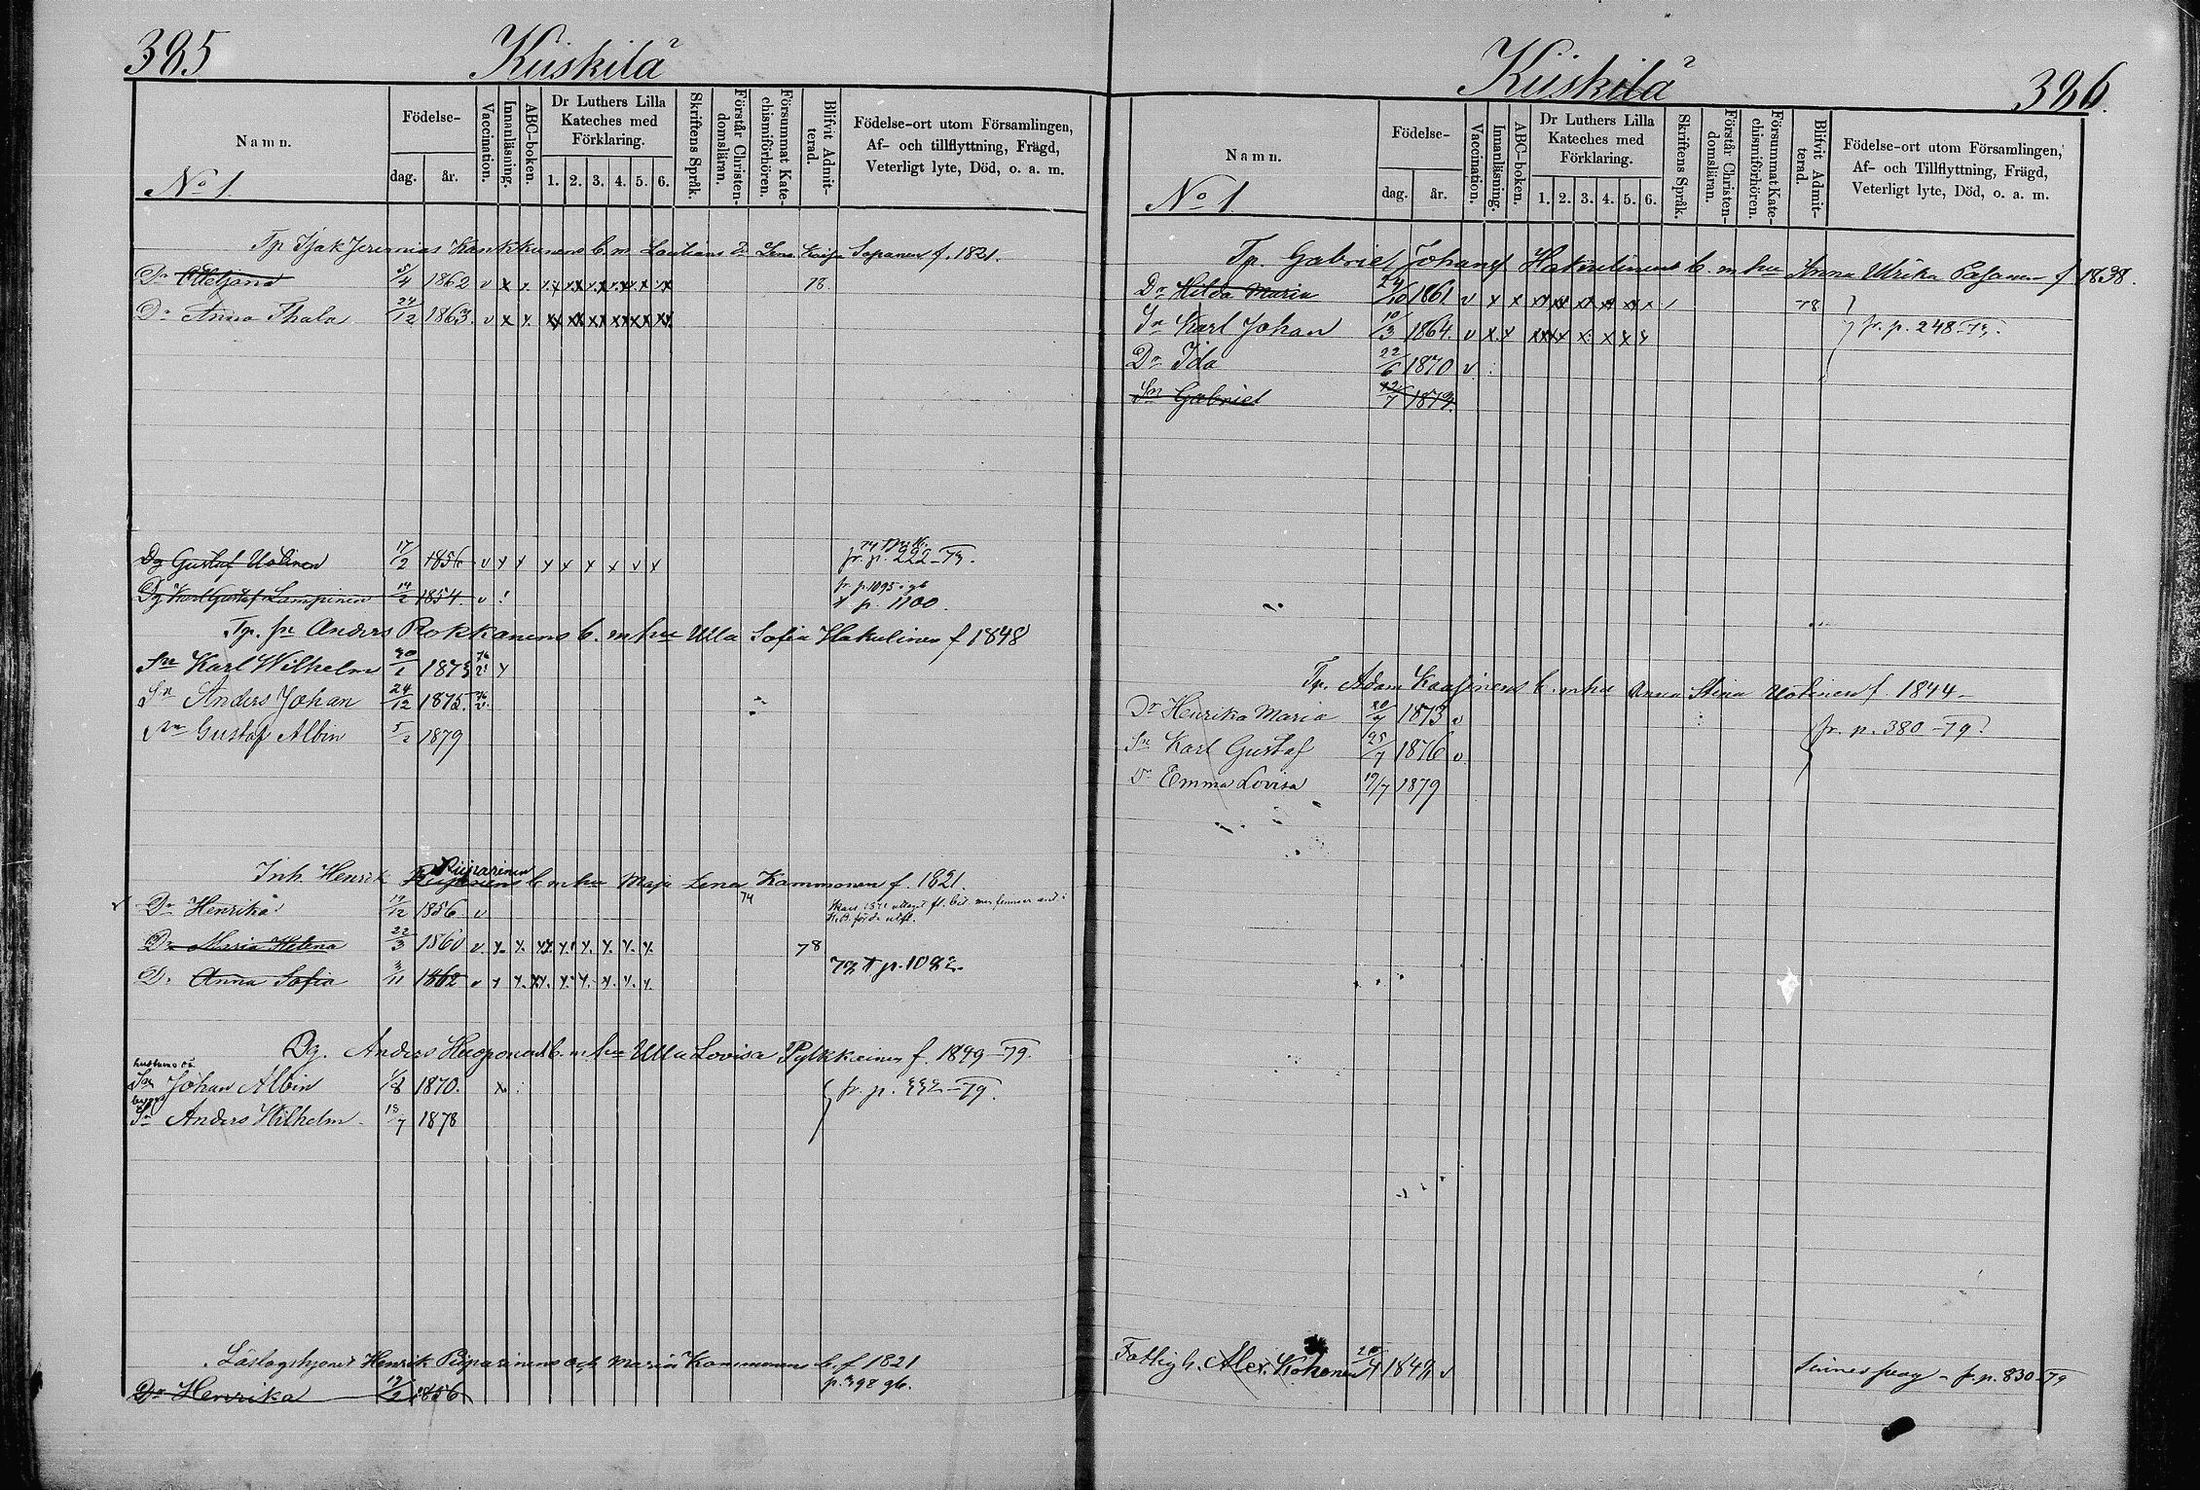 385
Kiiskilä
Namn.
Födelse-
dag.
år.
Vaccination.
Innanläsning.
ABC-boken.
Dr Luthers Lilla Kateches med Förklaring.
1. 2. 3. 4. 5. 6.
Skriftens Språk.
Förstår Christendomsläran.
Försummat Katechismiförhören.
Blifvit Admitterad.
Födelse-ort utom Församlingen,
Af- och tillflyttning, Frägd,
Veterligt lyte, Död, o. a. m.
No 1.
Tp Isak Jeremias b. m Lena Kaisa Sapanen f. 1821.
Dr 5/4 1862 v x x 78
Dr Anna 24/12 1863. v x x
Dg Gustaf Uotinen 17/2 1856 v x x x x x x v x fr. p. 222-73.
Dg Karl Gustaf Lampinen 14/2 1854. v fr. p. 1095
p. 1100.
Tp. Anders Rokkanens b. m hu Ulla Sofia Hakulinen f 1848
Sn Karl Wilhelm 20/1 1873 v x
Sn Anders Johan 24/12 1875. v.
Sn Gustaf Albin 5/2 1879
Inh. Henrik Piiparinen b m hu Maja Lena Kammonen f. 1821.
Dr Henrika 19/12 1856 v 74
Dr Maria Helena 22/3 1860 v x. x. x. x. x. x. x. x. 78
Dr Anna Sofia 3/11 1862 v x x. x. x. x. x. x. x. p. 1082
Dg. Anders b. m hu Ulla Lovisa Pylkkeinen f. 1849-79.
hustruns oä
Sn Johan Albin 1/8 1870. x fr. p. 332-79.
Sn Anders Wilhelm 18/7 1878
Henrik Piiparinens och Maria Kammonens b. f 1821
Dr Henrika 19/12 1856 p. 398 gb.
386.
Kiiskilä
Namn.
Födelse-
dag.
år.
Vaccination.
Innanläsning.
ABC-boken.
Dr Luthers Lilla Kateches med Förklaring.
1. 2. 3. 4. 5. 6.
Skriftens Språk.
Förstår Christendomsläran.
Försummat Katechismiförhören.
Blifvit Admitterad.
Födelse-ort utom Församlingen,
Af- och Tillflyttning, Frägd,
Veterligt lyte, Död, o. a. m.
No 1.
Tp. Gabriel Johans Hakulinens b. m hu Anna Ulrika Pasanen f 1838.
Dr Hilda Maria 24/10 1861 v x x 78
Sn Karl Johan 10/3 1864. v x x fr. p. 248-73.
Dr Ida 22/6 1870 v
Sn Gabriel 12/7 1873.
Tp. Adam Kaasinens b. m hu Anna Stina Uotinen f. 1844-
Dr Henrika Maria 20/7 1873 v fr. p. 380-79.
Sn Karl Gustaf 25/7 1876 v
Dr Emma Lovisa 19/7 1879
Fattigh. Alex. Kohonen 1842 v fr. p. 830-79